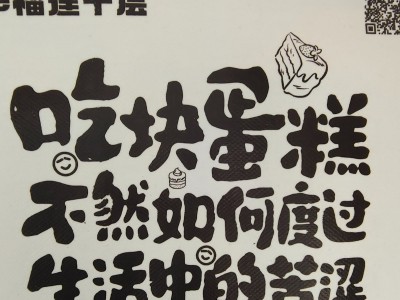 福莲千层
吃块蛋糕
不然如何度过
生活中的苦涩